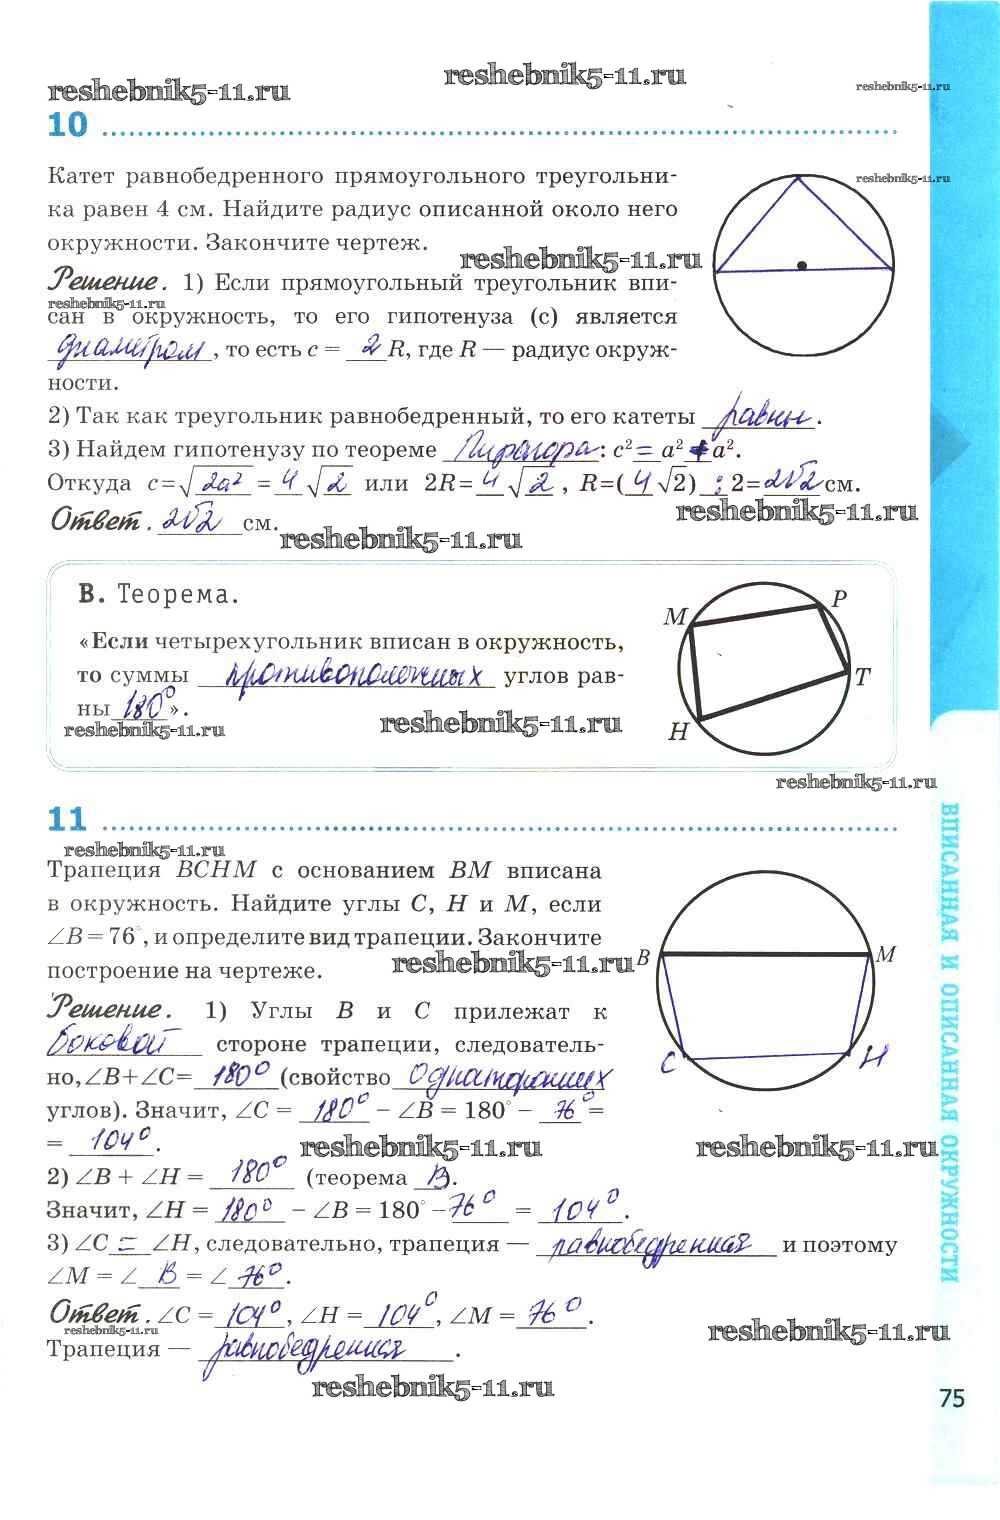 reshebnik5-11.ru
reshebnik5-11.ru
reshebnik5-11.ru
10
Катет равнобедренного прямоугольного треугольни-
reshebnik5-11.ru
ка равен 4 см. Найдите радиус описанной около него
окружности. Закончите чертеж.
reshebnik5-11.ru
Решение. 1) Если прямоугольный треугольник впи-
reshebnik5-11.ru
сан в окружность, то его гипотенуза (c) является
диаметром, то есть c = 2 R, где R — радиус окруж-
ности.
2) Так как треугольник равнобедренный, то его катеты равны.
3) Найдем гипотенузу по теореме Пифагора: c² = a² + a².
Откуда c=√2a² = 4 √2 или 2R= 4 √2, R=( 4 √2) : 2= 2√2 см.
reshebnik5-11.ru
Ответ. 2√2 см.
reshebnik5-11.ru
В. Теорема.
«Если четырехугольник вписан в окружность,
то суммы противоположных углов рав-
ны 180°».
reshebnik5-11.ru
reshebnik5-11.ru
M
P
T
H
reshebnik5-11.ru
11
reshebnik5-11.ru
Трапеция BCHM с основанием BM вписана
в окружность. Найдите углы C, H и M, если
∠B = 76°, и определите вид трапеции. Закончите
построение на чертеже.
reshebnik5-11.ru
B
M
C
H
Решение. 1) Углы B и C прилежат к
боковой стороне трапеции, следователь-
но, ∠B+∠C= 180° (свойство односторонних
углов). Значит, ∠C = 180° – ∠B = 180° – 76° =
= 104°.
reshebnik5-11.ru
reshebnik5-11.ru
2) ∠B + ∠H = 180° (теорема В).
Значит, ∠H = 180° – ∠B = 180° – 76° = 104°.
3) ∠C = ∠H, следовательно, трапеция — равнобедренная и поэтому
∠M = ∠ B = ∠ 76°.
Ответ. ∠C = 104°, ∠H = 104°, ∠M = 76°.
reshebnik5-11.ru
reshebnik5-11.ru
Трапеция — равнобедренная.
reshebnik5-11.ru
ВПИСАННАЯ И ОПИСАННАЯ ОКРУЖНОСТИ
75